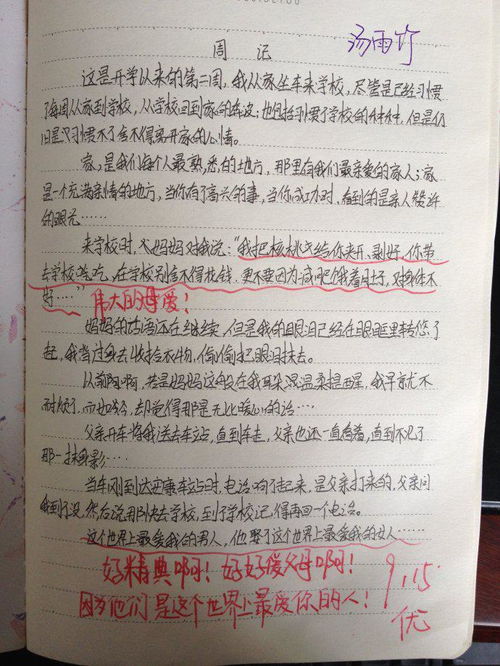 周记
汤雨竹
这是开学以来的第二周,我从家坐车来学校,尽管是已经习惯
了每周从家到学校,从学校回到家的奔波;也包括习惯了学校的种种,但是仍
旧是习惯不了舍不得离开家的心情。
家,是我们每个人最熟悉的地方,那里有我们最亲爱的家人;家
是一个充满亲情的地方,当你有了高兴的事,当你成功时,看到的是亲人赞许
的眼光……
来学校时,妈妈对我说:“我把核桃给你夹开、剥好,你带
去学校吃,在学校别舍不得花钱,更不要因为减肥饿着肚子,对身体不
好……”伟大的母爱!
妈妈的话语还在继续,但是我的眼泪已经在眼眶里转悠了
起,我背过身去收拾衣物,偷偷把眼泪抹去。
从前啊啊,若是妈妈这般在我耳朵温温柔提醒,我早就不
耐烦了,而如今,却觉得那是无比暖心的话……
父亲开车将我送去车站,直到车走,父亲也还一直看着,直到不见了
那一抹身影……
当车刚到达车站时,电话响了起来,是父亲打来的,父亲问
我到了没,然后说尽快去学校,到了学校记得再回一个电话。
这个世界上最爱我的男人,他娶了这个世界上最爱我的女人……
好精典啊!好好爱父母啊!
因为他们是这个世界上最爱你的人!
9.15
优